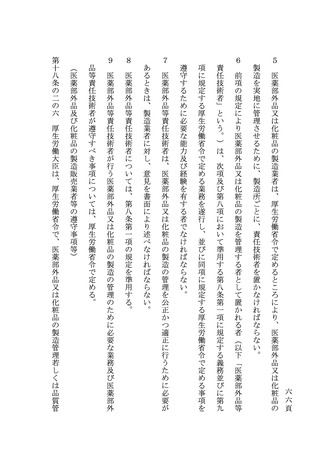 六六頁
５　医薬部外品又は化粧品の製造業者は、厚生労働省令で定めるところにより、医薬部外品又は化粧品の
製造を実地に管理させるために、製造所ごとに、責任技術者を置かなければならない。
６　前項の規定により医薬部外品又は化粧品の製造を管理する者として置かれる者（以下「医薬部外品等
責任技術者」という。）は、次項及び第八項において準用する第八条第一項に規定する義務並びに第九
項に規定する厚生労働省令で定める業務を遂行し、並びに同項に規定する厚生労働省令で定める事項を
遵守するために必要な能力及び経験を有する者でなければならない。
７　医薬部外品等責任技術者は、医薬部外品又は化粧品の製造の管理を公正かつ適正に行うために必要が
あるときは、製造業者に対し、意見を書面により述べなければならない。
８　医薬部外品等責任技術者については、第八条第一項の規定を準用する。
９　医薬部外品等責任技術者が行う医薬部外品又は化粧品の製造の管理のために必要な業務及び医薬部外
品等責任技術者が遵守すべき事項については、厚生労働省令で定める。
（医薬部外品及び化粧品の製造販売業者等の遵守事項等）
第十八条の二の六　厚生労働大臣は、厚生労働省令で、医薬部外品又は化粧品の製造管理若しくは品質管